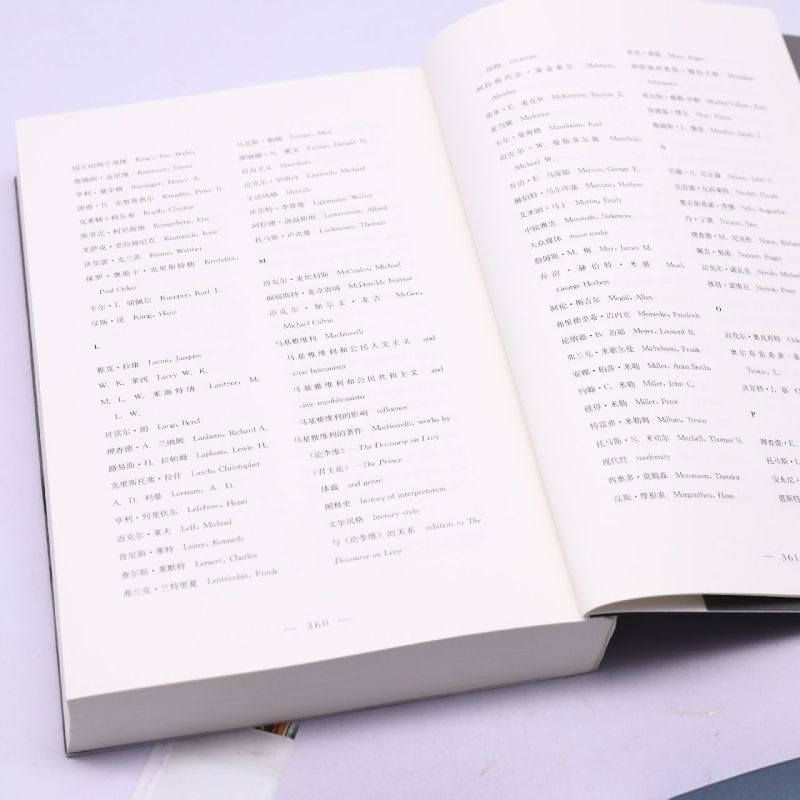 国王的两个身体 King's Two Bodies
詹姆斯·金尼维 Kinneavy, James
亨利·基辛格 Kissinger, Henry A.
彼得·B. 克努普惠尔 Knupfer, Peter B.
克莱顿·科尔布 Koelb, Clayton
埃里克·柯尼斯堡 Konigsberg, Eric
艾萨克·克拉姆尼克 Kramnick, Isaac
沃尔瑟·克兰茨 Kranz, Walther
保罗·奥斯卡·克里斯特勒 Kristeller,
Paul Oskar
卡尔·J. 屈佩尔 Kuepper, Karl J.
汉斯·昆 Kung, Hans
L
雅克·拉康 Lacan, Jacques
W. K. 莱西 Lacey W. K.
M. L. W. 莱斯特纳 Laistner, M.
L. W.
贝雷尔·朗 Lang, Berel
理查德·A. 兰纳姆 Lanham, Richard A.
路易斯·H. 拉帕姆 Lapham, Lewis H.
克里斯托弗·拉什 Lasch, Christopher
A. D. 列曼 Leeman, A. D.
亨利·列斐伏尔 Lefebvre, Henri
迈克尔·莱夫 Leff, Michael
肯尼斯·莱特 Leiter, Kenneth
查尔斯·莱默特 Lemert, Charles
弗兰克·兰特里夏 Lentricchia, Frank
马克斯·勒纳 Lerner, Max
唐纳德·N. 莱文 Levine, Donald N.
自由主义 liberalism
迈克尔·里纳肖 Lienesch, Michael
生活风格 lifestyle
沃尔特·李普曼 Lippmann, Walter
阿拉德·洛温斯坦 Lowenstein, Allard
托马斯·卢克曼 Luckmann, Thomas
M
迈克尔·麦坎利斯 McCanles, Michael
福瑞斯特·麦克唐纳 McDonald, Forrest
迈克尔·加尔文·麦吉 McGee,
Michael Calvin
马基雅维利 Machiavelli
马基雅维利和公民人文主义 and
civic humanism
马基雅维利和公民共和主义 and
civic republicanism
马基雅维利的影响 influence
马基雅维利的著作 Machiavelli, works by
《论李维》—The Discourse on Livy
《君主论》—The Prince
体裁 and genre
阐释史 history of interpretation
文学风格 literary style
与《论李维》的关系 relation to The
Discourse on Livy
— 360 —
结构 structure
阿拉斯代尔·麦金泰尔 McIntyre,
Alasdair
雷米·E. 麦克罗 McKerrow, Raymie E.
麦当娜 Madonna
卡尔·曼海姆 Mannheim, Karl
迈克尔·W. 曼斯菲尔德 Mansfield,
Michael W.
乔治·E. 马库斯 Marcus, George E.
赫伯特·马尔库塞 Marcuse, Herbert
艾米丽·马丁 Martin, Emily
Masuzo, Nakamon
大众媒体 mass media
詹姆斯·M. 梅 May, James M.
乔治·赫伯特·米德 Mead,
George Herbert
阿伦·梅吉尔 Megill, Allan
弗里德里希·迈内克 Meinecke, Friedrich
伦纳德·B. 迈耶 Meyer, Leonard B.
弗兰克·米歇尔曼 Michelman, Frank
安娜·伯莎·米勒 Miller, Anna Bertha
约翰·C. 米勒 Miller, John C.
彼得·米勒 Miller, Peter
特雷弗·米勒姆 Millum, Trevor
托马斯·N. 米切尔 Mitchell, Thomas N.
现代性 modernity
西奥多·莫姆森 Mommsen, Theodor
汉斯·摩根索 Morgenthau, Hans
N
约翰·S. 尼尔森 Nelson, John S.
克洛德·尼科莱特 Nicolet, Claude
丹·宁谟 Nimmo, Dan
理查德·M. 尼克松 Nixon, Richard
佩吉·努南 Noonan, Peggy
迈克尔·诺瓦克 Novak, Michael
彼得·诺维克 Novick, Peter
O
迈克尔·奥克肖特
沃尔特·J. 翁
P
理查德·E.
托马斯·
— 361